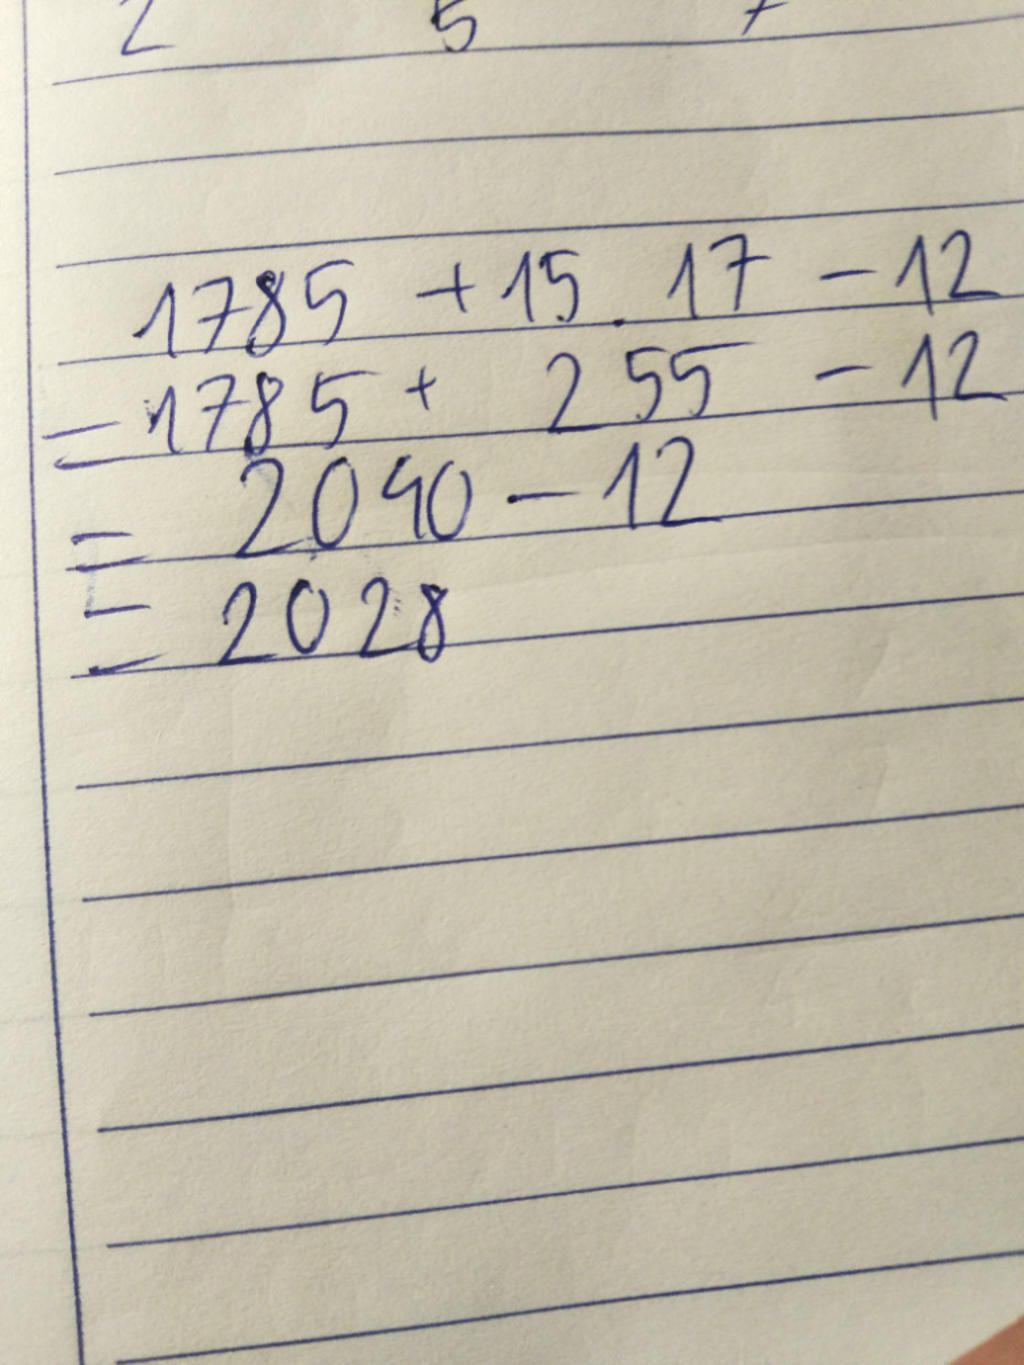 2 5 7
1785 + 15 . 17 - 12
= 1785 + 255 - 12
= 2040 - 12
= 2028